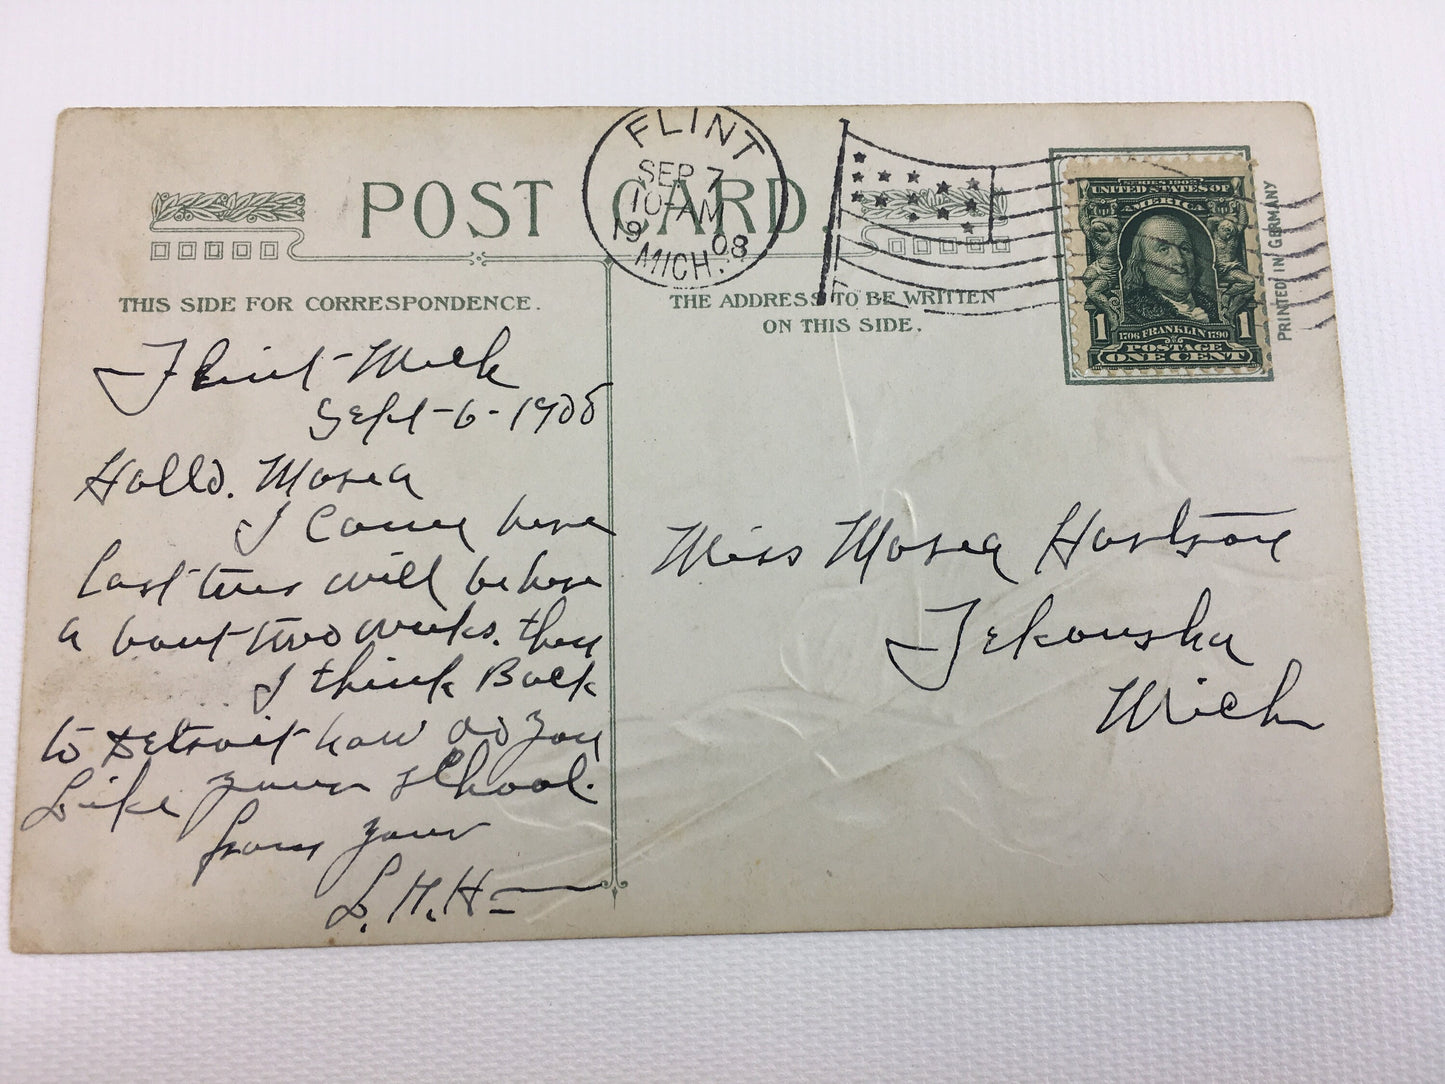 POST CARD.
FLINT
SEP 7
10-AM
1908
MICH.
SERIES 1902
UNITED STATES OF
AMERICA
1 1706 FRANKLIN 1790 1
POSTAGE
ONE CENT
PRINTED IN GERMANY
THIS SIDE FOR CORRESPONDENCE.
Flint Mich
Sept-6-1908
Hallo. Mosea
I Came here
Last tues will be here
a bout two weeks. then
I think Back
to Detroit how do you
Like your school.
from your
L. M. H
THE ADDRESS TO BE WRITTEN
ON THIS SIDE.
Miss Mosea
Tekonsha
Mich